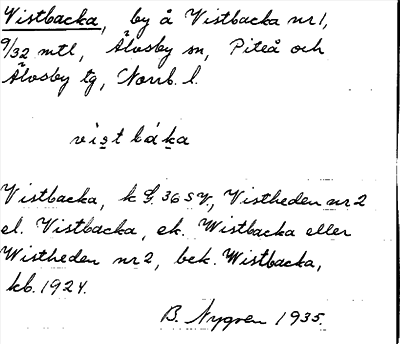 Vistbacka, by å Vistbacka nr 1,
9/32 mtl, Älvsby sn, Piteå och
Älvsby tg, Norrb. l.
vistbáka
Vistbacka, k G. 36 s V., Vistheden nr 2
el. Vistbacka, ek. Wistbacka eller
Wistheden nr 2, bck. Wistbacka,
kb. 1924.
B. Nygren 1935.